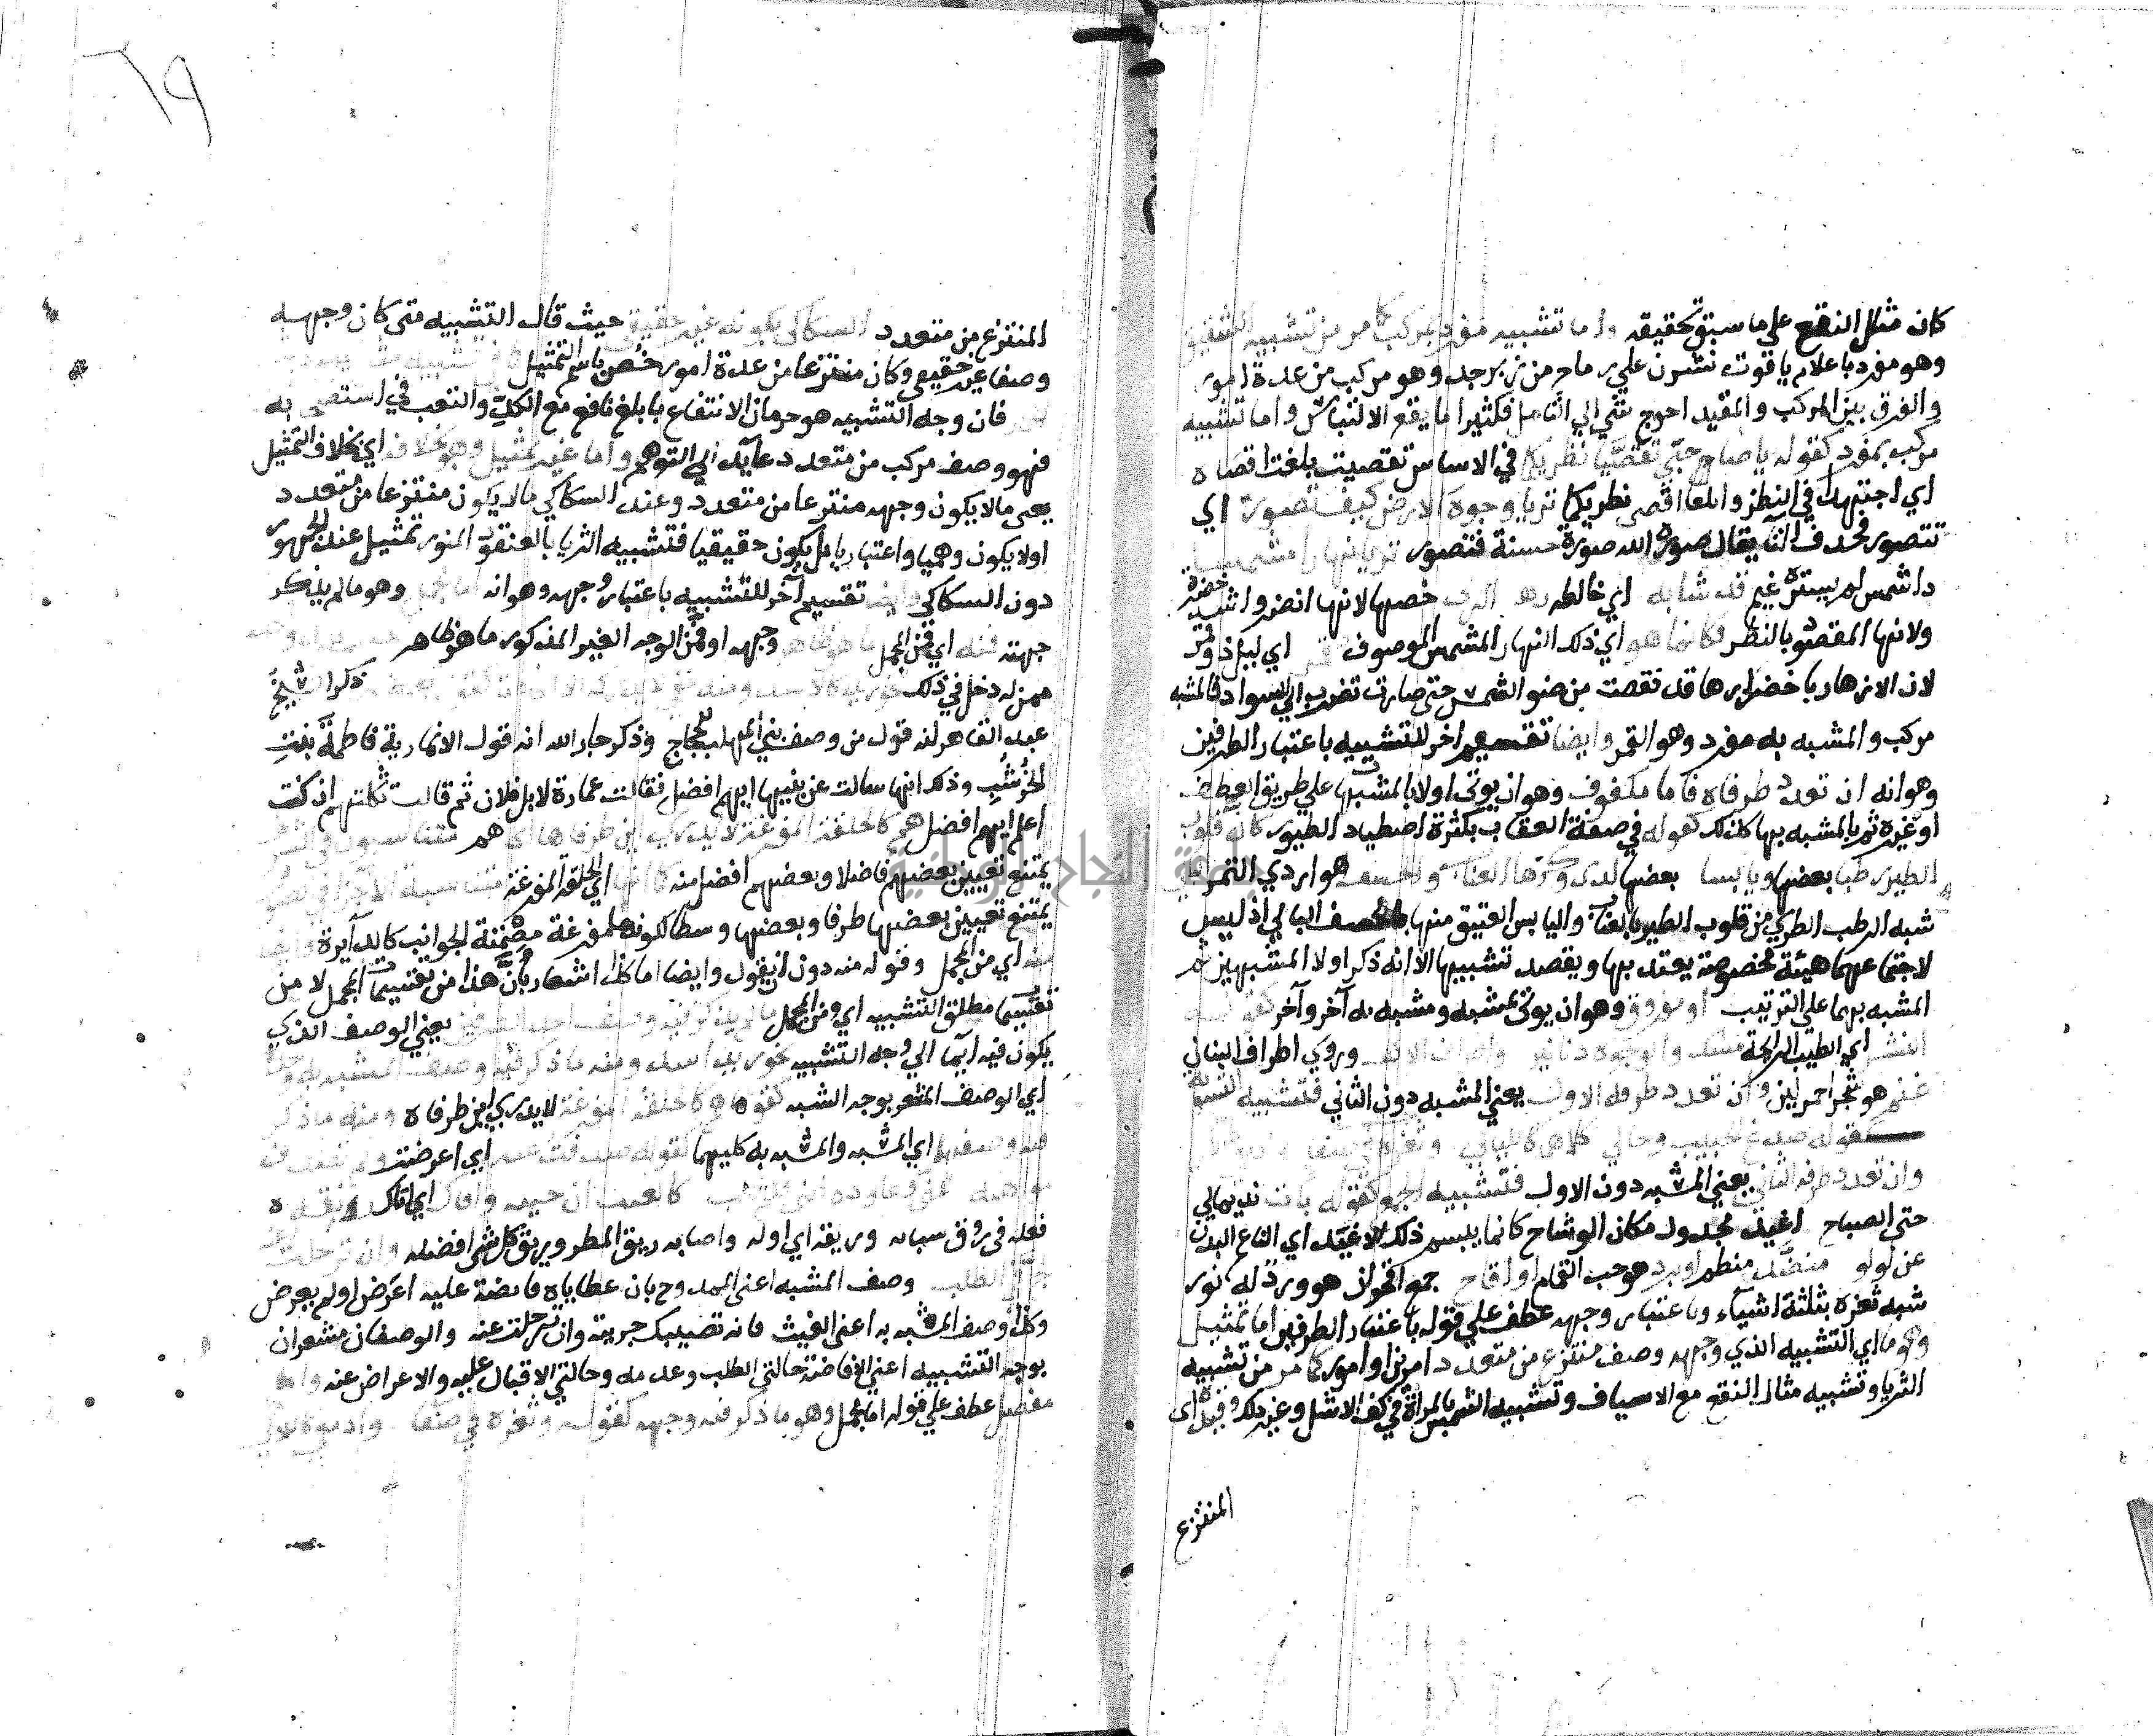 كان مثال النقع على ما سبق تحقيقه واما تشبيه مفرد بمركب كما مر من تشبيه الشقيق
وهو مفرد باعلام ياقوت نشرن على رماح من زبرجد وهو مركب من عدة امور
والفرق بين المركب والمقيد احوج شي الي التامل فكثيرا ما يقع الالتباس واما تشبيه
مركب بمفرد كقوله يا صاحبي تقصيا نظريكما في الاساس تقصيت بلغت اقصاه
اي اجتهدا في النظر وابلغا اقصي نظريكما تريا وجوه الارض كيف تصور اي
تتصور فحذف التا يقال صوره الله صورة حسنة فتصور تريا نهارا مشمسا
ذا شمس لم يستره غيم قد شابه اي خالطه زهر الربا خصها لانها انضر واشد خضرة
ولانها المقصود بالنظر فكانما هو اي ذلك النهار المشمس الموصوف مقمر اي ليل ذو قمر
لان الازهار باخضرارها قد نقصت من ضوء الشمس حتى صارت تضرب الي السواد فالمشبه
مركب والمشبه به مفرد وهو القمر وايضا تقسيم اخر للتشبيه باعتبار الطرفين
وهو انه ان تعدد طرفاه فاما ملفوف وهو ان يوتى اولا بالمشبهات علي طريق العطف
او غيره ثم بالمشبه بها كذلك كقوله في صفة العقاب بكثرة اصطياد الطيور كان قلوب
الطير رطبا بعضها ويابسا بعضها لدى وكرها العناب والحشف هو اردي التمر البالي
شبه الرطب الطري من قلوب الطير بالعناب واليابس العتيق منها بالحشف البالي اذ ليس
لاجتماعهما هيئة مخصوصة يعتد بها ويقصد تشبيهها الا انه ذكر اولا المشبهين ثم
المشبه بهما علي الترتيب او مفروق وهو ان يوتى بمشبه ومشبه به ثم آخر وآخر كقوله
النشر اي الطيب الرائحة مسك والوجوه دنانير واطراف الاكف وروي اطراف البنان
عنم هو شجر احمر لين وان تعدد طرفه الاول يعني المشبه دون الثاني فتشبيه التسوية
كقوله صدغ الحبيب وحالي كلاهما كالليالي وثغره في صفا وادمعي كاللالي
وان تعدد طرفه الثاني يعني المشبه به دون الاول فتشبيه الجمع كقوله بات نديما لي
حتى الصباح اغيد مجدول مكان الوشاح كانما يبسم ذلك الاغيد اي الناعم البدن
عن لولو منضد منظم او برد هو حب الغمام او اقاح جمع اقحوان هو ورد له نور
شبه ثغره بثلثة اشياء وباعتبار وجهه عطف علي قوله باعتبار الطرفين اما تمثيل
وهو ما اي التشبيه الذي وجهه وصف منتزع من متعدد امرين او امور كما مر من تشبيه
الثريا وتشبيه مثار النقع مع الاسياف وتشبيه الشمس بالمرآة في كف الاشل وغير ذلك وقيده اي
المنتزع
٦٩
المنتزع من متعدد السكاكي بكونه غير حقيقي حيث قال التشبيه متى كان وجهه
وصفا غير حقيقي وكان منتزعا من عدة امور خص باسم التمثيل كما في تشبيه مثل يهود
فان وجه التشبيه هو حرمان الانتفاع بابلغ نافع مع الكد والتعب في استصحابه
فهو وصف مركب من متعدد عائد الي التوهم واما غير تمثيل وهو بخلافه اي بخلاف التمثيل
يعني ما لا يكون وجهه منتزعا من متعدد وعند السكاكي ما لا يكون منتزعا من متعدد
او لا يكون وهميا واعتباريا بل يكون حقيقيا فتشبيه الثريا بالعنقود المنور تمثيل عند الجمهور
دون السكاكي وايضا تقسيم آخر للتشبيه باعتبار وجهه وهو انه اما مجمل وهو ما لم يذكر
وجهه فمنه اي فمن المجمل ما هو ظاهر وجهه او فمن الوجه الغير المذكور ما هو ظاهر
ممن له دخل في ذلك نحو زيد كالاسد ومنه خفي لا يدركه الا الخاصة كقول بعضهم ذكر الشيخ
عبد القاهر انه قول من وصف بني المهلب للحجاج وذكر جار الله انه قول الانمارية فاطمة بنت
الخرشب وذلك انها سالت عن بنيها ايهم افضل فقالت عمارة لا بل فلان ثم قالت ثكلتهم ان كنت
اعلم ايهم افضل هم كالحلقة المفرغة لا يدري اين طرفاها اي هم متناسبون في الشرف
يمتنع تعيين بعضهم فاضلا وبعضهم افضل منه كما انها اي الحلقة المفرغة متناسبة الاجزا في الصورة
يمتنع تعيين بعضها طرفا وبعضها وسطا لكونها مفرغة مصمتة الجوانب كالدايرة وايضا
منه اي من المجمل وقوله منه دون ان يقول وايضا اما كذا اشعار بان هذا من تقسيمات المجمل لا من
تقسيمات مطلق التشبيه اي ومن المجمل ما لم يذكر فيه وصف احد الطرفين يعني الوصف الذي
يكون فيه ايما الي وجه التشبيه نحو زيد اسد ومنه ما ذكر فيه وصف المشبه به وحده
اي الوصف المشعر بوجه الشبه كقولها هم كالحلقة المفرغة لا يدري اين طرفاها ومنه ما ذكر
فيه وصفهما اي المشبه والمشبه به كليهما كقوله صدفت عنه اي اعرضت ولم تصدف
مواهبه عني وعاوده ظني فلم يخب كالغيث ان جئته وافاك اي اتاك ريقه
يقال فعله في روق شبابه وريقه اي اوله واصابه ريق المطر وريق كل شي افضله وان ترحلت عنه
لج في الطلب وصف المشبه اعني الممدوح بان عطاياه فايضة عليه اعرض او لم يعرض
وكذا وصف المشبه به اعني الغيث فانه تصيبك جيته وان ترحلت عنه والوصفان مشعران
بوجه التشبيه اعني الافاضة حالتي الطلب وعدمه وحالتي الاقبال عليه والاعراض عنه واما
مفصل عطف علي قوله اما مجمل وهو ما ذكر فيه وجهه كقوله وثغره في صفا وادمعي كاللالي
جامعة النجاح الوطنية